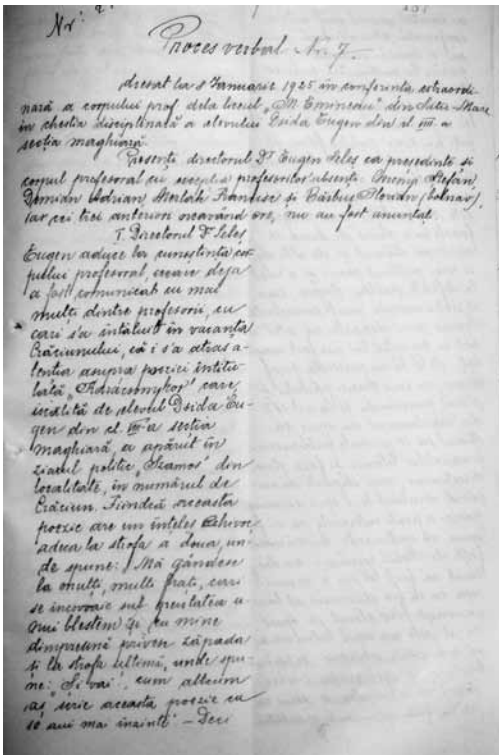 Nr.
Proces verbal Nr. 7.
dresat la 8 Ianuarie 1925 in conferinta extraordi-
nară a corpului prof. dela liceul „M. Eminescu" din Satu-Mare
in chestia disciplinară a elevului Dsida Eugen din cl. VIII-a
secția maghiară.
Presenți directorul Dr Eugen Seleș ca președinte și
corpul profesoral cu excepția profesorilor absenți: Ștefan,
Demian Adrian, Francisc și Bărbuș Floridor (bolnav),
iar cei trei anteriori neavând ore, nu au fost anunțați.
I. Directorul Dr Seleș
Eugen aduce la cunoștința cor-
pului profesoral, ceeace deja
a fost comunicat cu mai
multi dintre profesorii, cu
cari s'a intâlnit in vacanța
Crăciunului, că i s'a atras a-
tentia asupra poeziei intitu-
lată „Karácsonykor" care,
iscălită de elevul Dsida Eu-
gen din cl. VIII-a secția
maghiară, a apărut în
ziarul politic „Szamos" din
localitate, in numărul de
Crăciun. Fiindcă aceasta
poezie are un ințeles
adecă la strofa a doua, un-
de spune: Mă gândesc
la mulți, multi frați, cari
se incovoaie sub greutatea u-
nui blestem și cu mine
dimpreună privesc zăpada
si la strofa ultimă, unde spu-
ne: „Și vai!, cum altcum
aș scrie aceasta poezie cu
10 ani mai inainte" – Deci